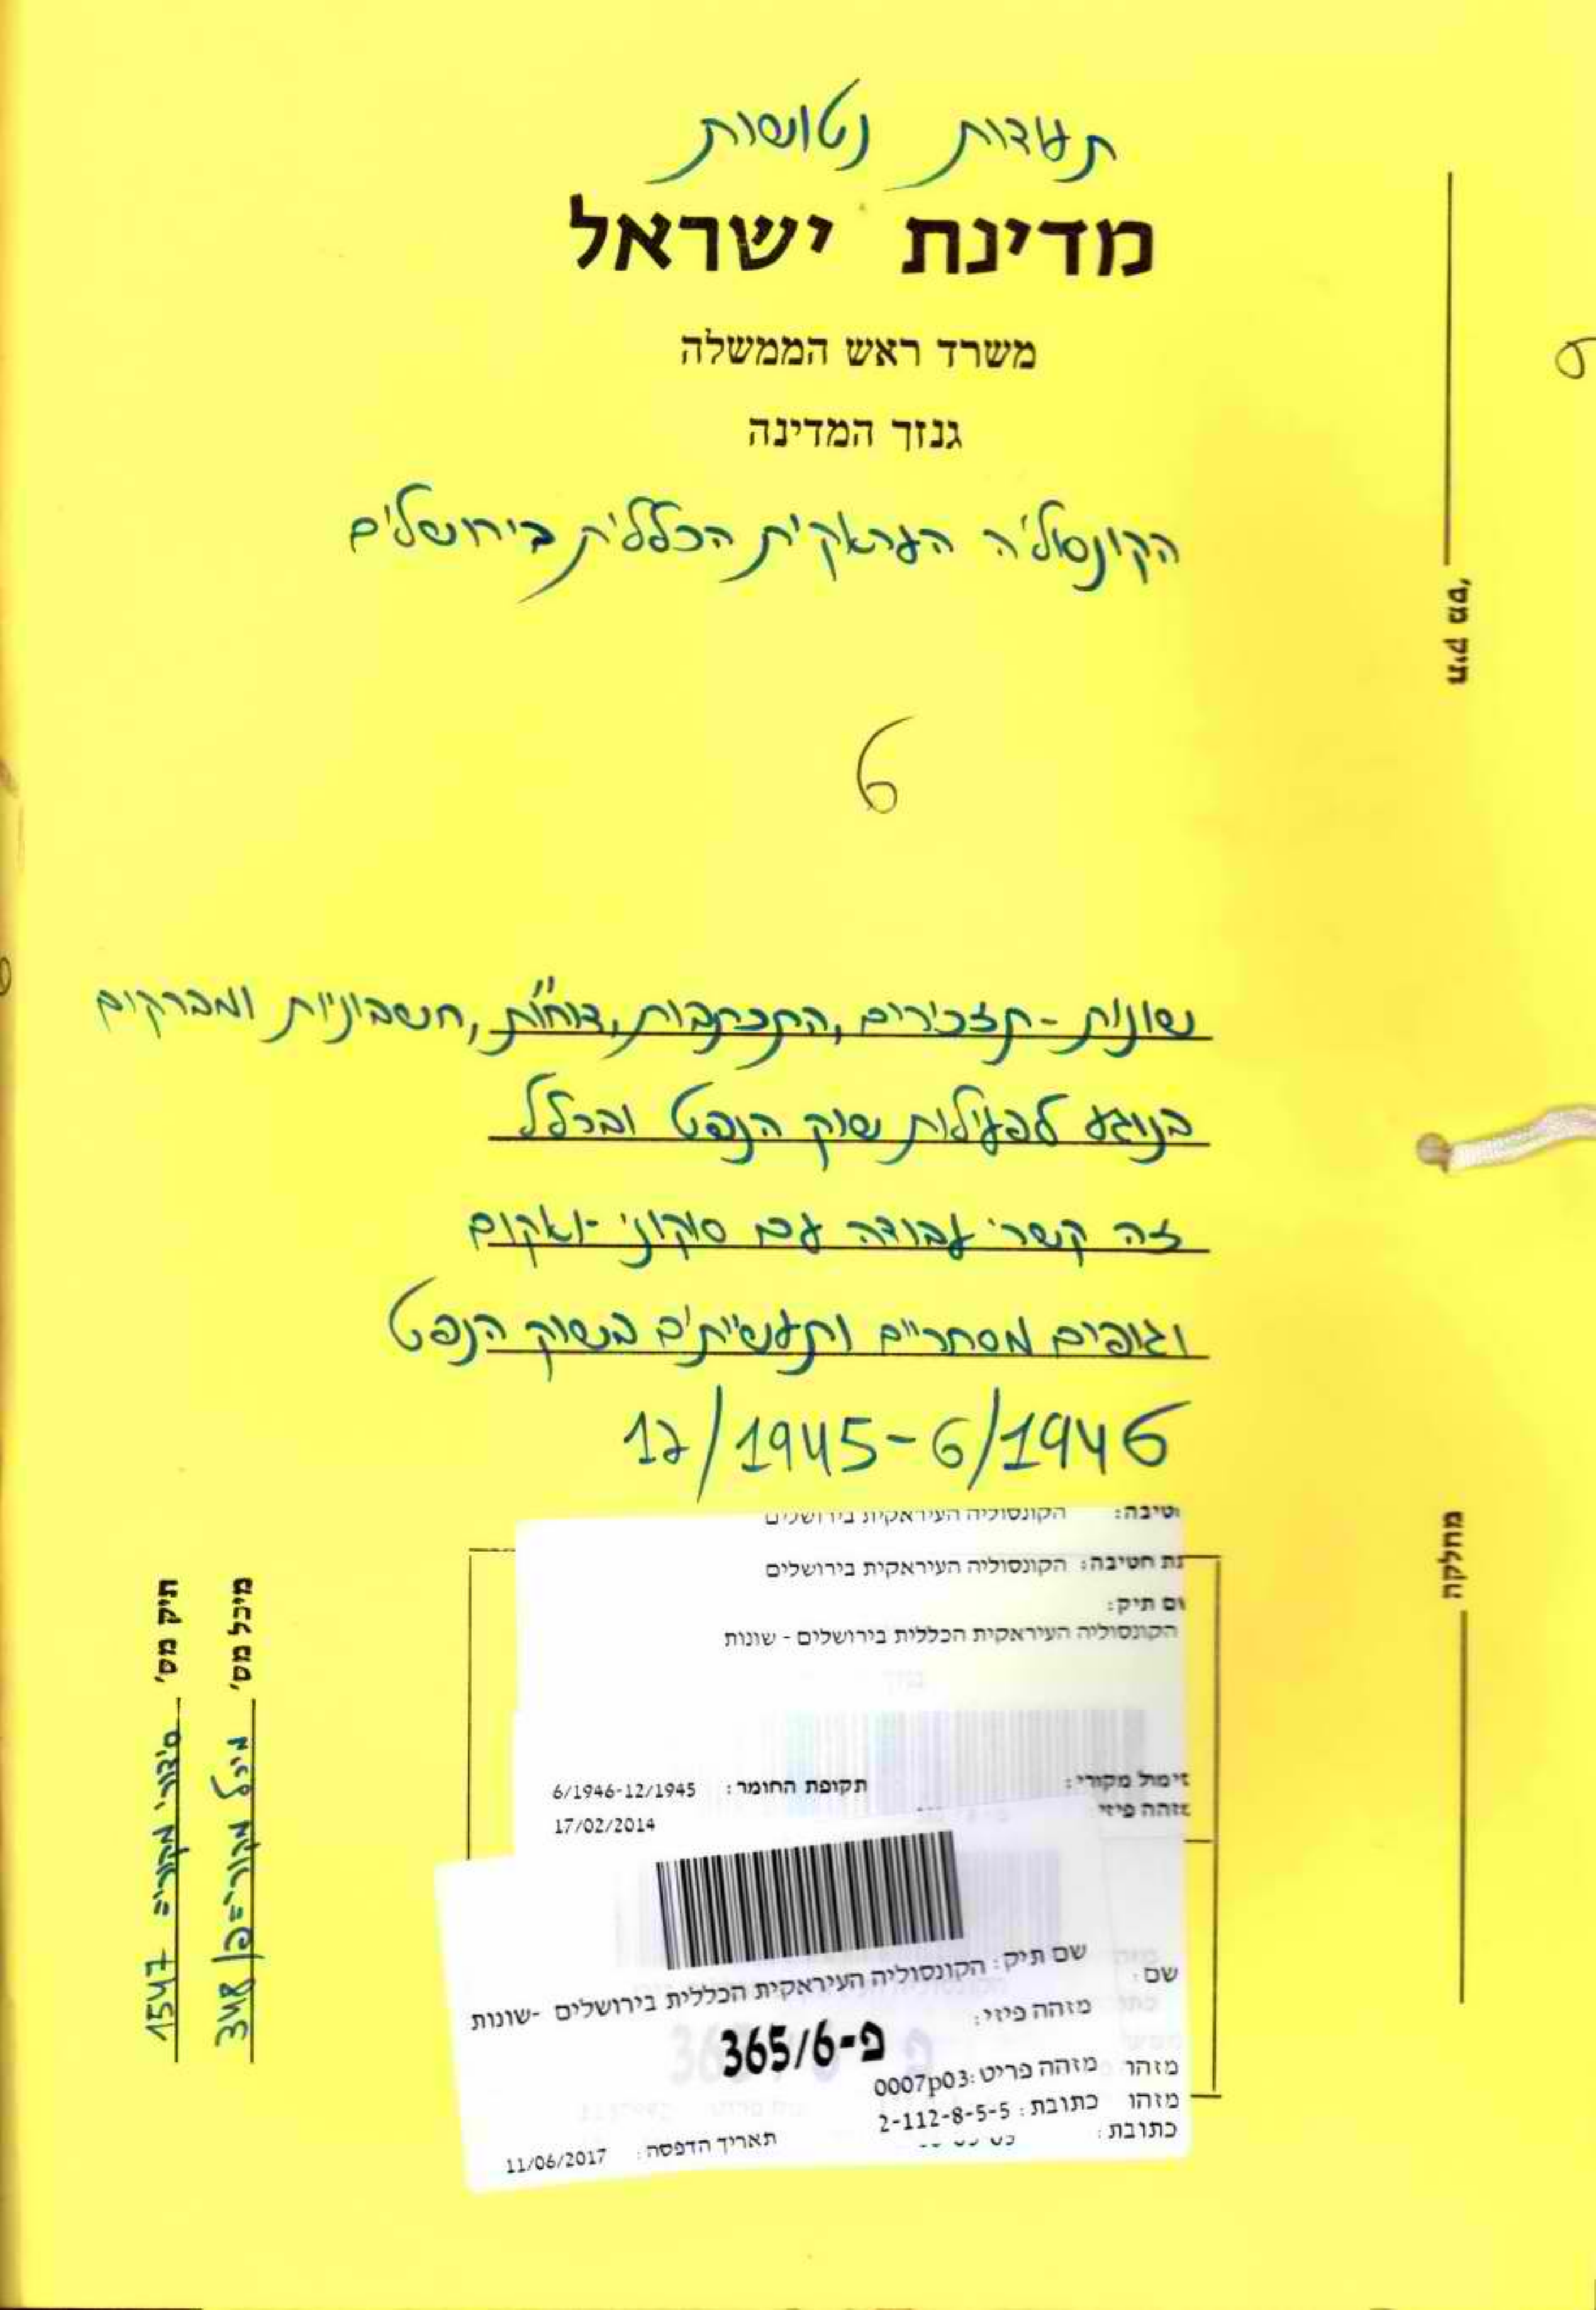 תעודות נטושות
מדינת ישראל
משרד ראש הממשלה
גנזך המדינה
הקונסוליה העראקית הכללית בירושלים
6
שונות - תזכירים, התכתבות, דו"חות, חשבוניות ומברקים
בנוגע לפעילות שוק הנפט ובכלל
זה קשרי עבודה עם סוקוני-ואקום
וגופים מסחריים ותעשייתים בשוק הנפט
12/1945-6/1946
תיק מס'
מחלקה
תיק מס' סידורי מקורי= 1547
מיכל מס' מיכל מקורי= פ/348
טיבה: הקונסוליה העיראקית בירושלים
ת חטיבה: הקונסוליה העיראקית בירושלים
ם תיק:
הקונסוליה העיראקית הכללית בירושלים - שונות
ימול מקורי: תקופת החומר: 6/1946-12/1945
זהה פיזי
17/02/2014
שם תיק: הקונסוליה העיראקית הכללית בירושלים -שונות
שם
מזהה פיזי:
פ-365/6
מזהה פריט: 0007p03
מזהו
כתובת: 2-112-8-5-5
מזהו
כתובת:
תאריך הדפסה: 11/06/2017